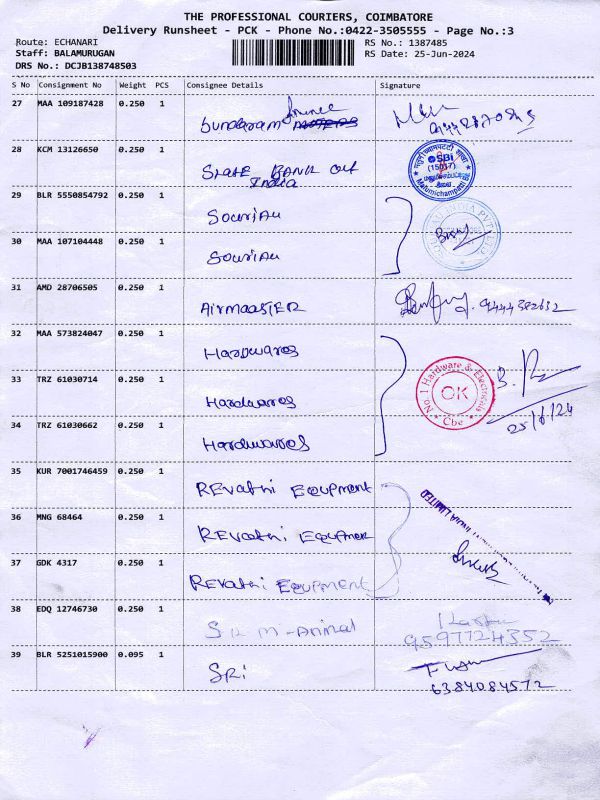 THE PROFESSIONAL COURIERS, COIMBATORE
Delivery Runsheet - PCK - Phone No.:0422-3505555 - Page No.:3
Route: ECHANARI
RS No.: 1387485
Staff: BALAMURUGAN
RS Date: 25-Jun-2024
DRS No.: DCJB138748503
S No Consignment No Weight PCS Consignee Details Signature
27 MAA 109187428 0.250 1 Sundaram finance
28 KCM 13126650 0.250 1 State BANK OF India
SBI
(15017)
Malumichampatti
29 BLR 5550854792 0.250 1 Souriau
30 MAA 107104448 0.250 1 Souriau
31 AMD 28706505 0.250 1 AIRMAASTER 9444382632
32 MAA 573824047 0.250 1 Hardwares
33 TRZ 61030714 0.250 1 Hardwares
No. 1 Hardware & Electricals
OK
Cbe
25/6/24
34 TRZ 61030662 0.250 1 Hardwares
35 KUR 7001746459 0.250 1 REvathi EQUPment
36 MNG 68464 0.250 1 REvathi EQUPmen
INDIA LIMITED
37 GDK 4317 0.250 1 REvathi EQUPment
38 EDQ 12746730 0.250 1 S K M - Animal
9597724352
39 BLR 5251015900 0.095 1 SRi
6384084572